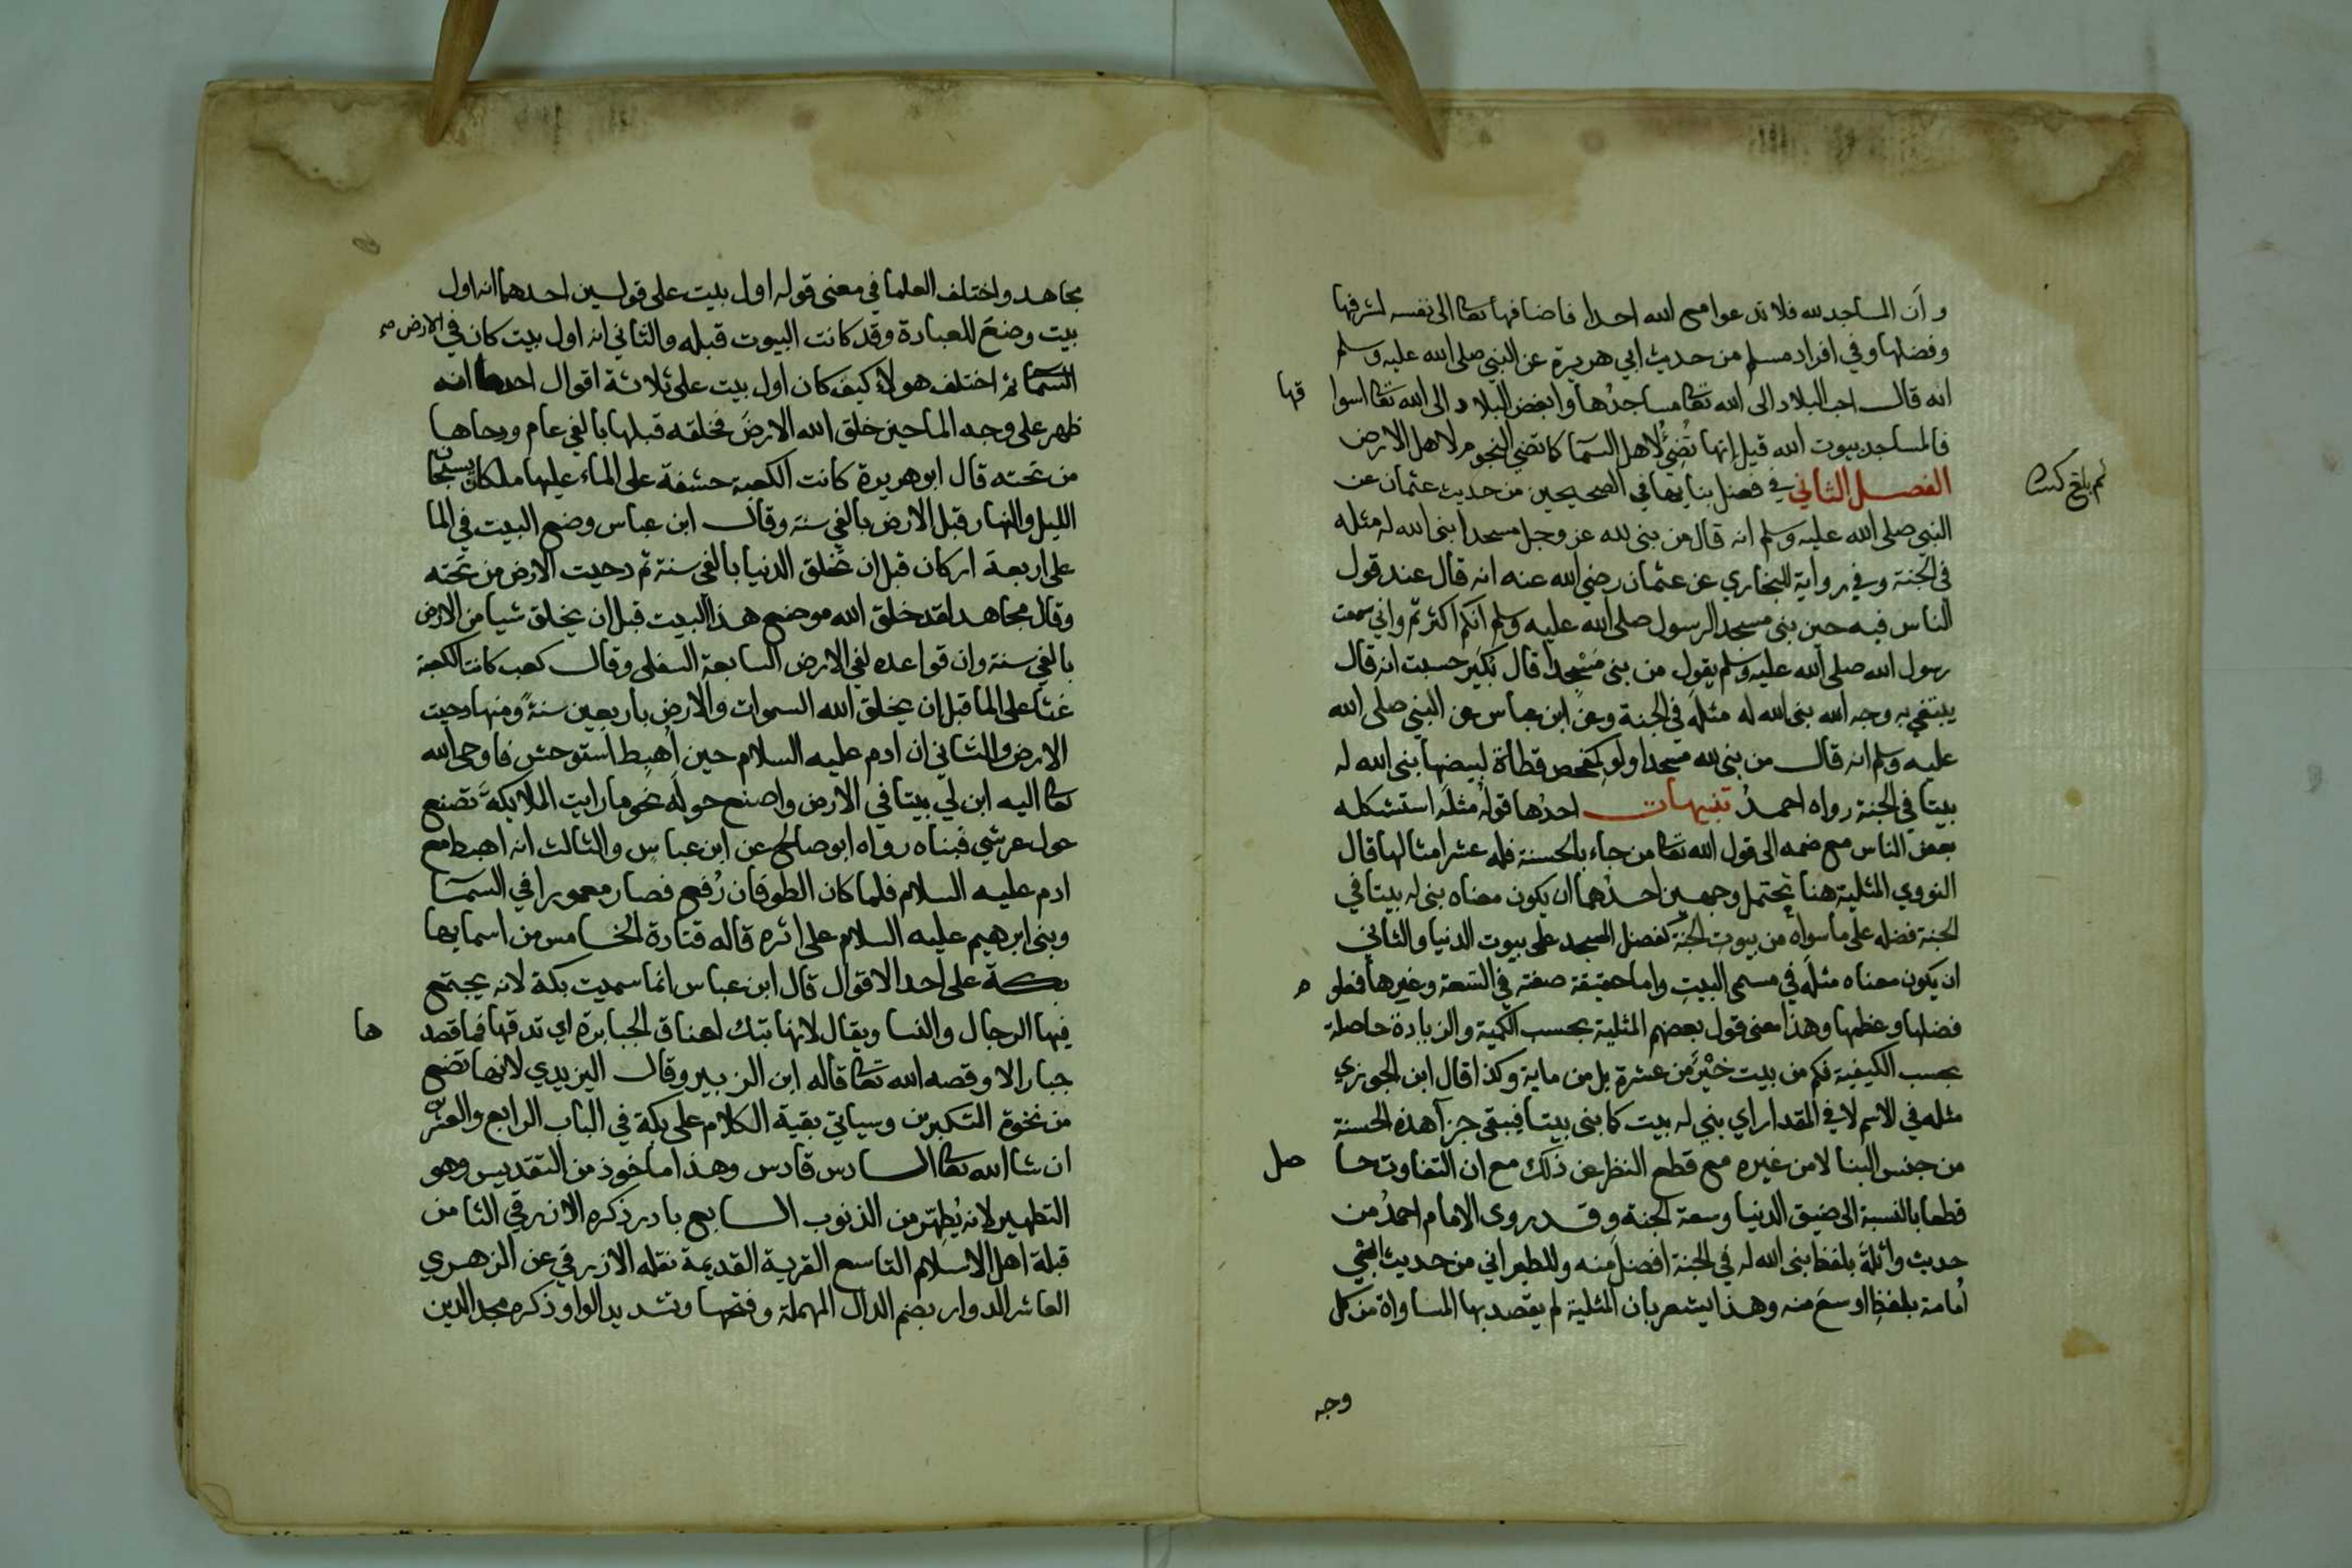 وأن المساجد لله فلا تدعوا مع الله احدا فاضافها تعا الى نفسه لشرفها
وفضلها وفي افراد مسلم من حديث ابي هريرة عن النبي صلى الله عليه وسلم
انه قال احب البلاد الى الله تعا مساجدُها وابغض البلاد الى الله تعا اسوا قها
فالمساجد بيوت الله قيل إنها تُضِئُ لاهل السمآ كما تضي النجوم لاهل الارض
الفصل الثاني في فضل بنايها في الصحيحين من حديث عثمان عن
النبي صلى الله عليه وسلم انه قال من بنى لله عز وجل مسجدا بنى الله له مثله
في الجنة وفي رواية للبخاري عن عثمان رضي الله عنه انه قال عند قول
الناس فيه حين بنى مسجد الرسول صلى الله عليه وسلم انكم اكثرتم واني سمعت
رسول الله صلى الله عليه وسلم يقول من بنى مَسْجِدا قال بُكَير حسبت انه قال
يبتغي به وجه الله بنى الله له مثله في الجنة وعن ابن عباس عن النبي صلى الله
عليه وسلم انه قال من بنى لله مسجدا ولو كمفحص قطاة لبيضها بنى الله له
بيتا في الجنة رواه احمدُ تنبيهات احدُها قولُه مثلَه استشكله
بعض الناس مع ضمه الى قول الله تعا من جاء بالحسنة فله عشر امثالها قال
النووي المثلية هنا تحتمل وجهين احدُهما ان يكون معناه بنى له بيتا في
الجنة فضله على ما سواه من بيوت الجنة كفضل المسجد على بيوت الدنيا والثاني
ان يكون معناه مثلَه في مسمى البيتِ واما حقيقة صفته في السَّعة وغيرها فعلو م
فضلها وعظمها وهذا معنى قول بعضهم المثلية بحسب الكمية والزيادة حاصلة
بحسب الكيفية فكم من بيت خَيْرٌ من عشرة بل من ماية وكذا قال ابن الجوزي
مثله في الاسم لا في المقدار اي بني له بيت كما بنى بيتا فيبقى جزآ هذه الحسنة
من جنس البنا لا من غيره مع قطع النظر عن ذلك مع ان التفاوت حا صل
قطعا بالنسبة الى ضيق الدنيا وسعة الجنة وقد روى الامام احمدُ من
حديث واثلة بلفظ بنى الله له في الجنة افضل منه وللطبراني من حديث ابي
أمامة بلفظِ اوسعَ منه وهذا يشعر بان المثلية لم يقصد بها المساواة من كل
وجه
مجاهد واختلف العلما في معنى قوله اول بيت على قولين احدهما انه اول
بيت وضعَ للعبادة وقد كانت البيوت قبله والثاني انه اول بيت كان في الارض صح
السمآ ثم اختلف هولاء كيف كان اول بيت على ثلاثة اقوال احدها انه
ظهر على وجه الما حين خلق الله الارضَ فخلقه قبلها بالفي عام ودحاها
من تحته قال ابو هريرة كانت الكعبة حشفة على الماء عليها ملكان يسبحان
الليل والنهار قبل الارض بالفي سنة وقال ابن عباس وضع البيت في الما
على اربعة اركان قبل ان تخلق الدنيا بالفي سنة ثم دحيت الارض من تحته
وقال مجاهد لقد خلق الله موضع هذا البيت قبل ان يخلق شيا من الارض
بالفي سنة وان قواعده لفي الارض السابعة السفلى وقال كعب كانت الكعبة
غثا على الما قبل ان يخلق الله السموات والارض باربعين سنةً ومنها دحيت
الارض والثاني ان ادم عليه السلام حين أُهبِط استوحش فاوحى الله
تعا اليه ابن لي بيتا في الارض واصنع حوله نحو ما رايت الملايكة تصنع
حول عرشي فبناه رواه ابو صالح عن ابن عباس والثالث انه اهبط مع
ادم عليه السلام فلما كان الطوفان رُفع فصار معمورا في السمآ
وبنى ابرهيم عليه السلام على اثره قاله قتادة الخامس من اسمايها
بكة على احد الاقوال قال ابن عباس انما سميت بكة لانه يجتمع
فيها الرجال والنسا ويقال لانها تبك اعناق الجبابرة اي تدقها فما قصد ها
جبار الا وقصه الله تعا قاله ابن الزبير وقال اليزيدي لانها تضع
من نخوة المتكبرين وسياتي بقية الكلام على بكة في الباب الرابع والعشرين
ان شا الله تعا السادس قادس وهذا ماخوذ من التقديس وهو
التطهير لانه يُطهِّر من الذنوب السابع بادر ذكره الازرقي الثامن
قبلة اهل الاسلام التاسع القرية القديمة نقله الازرقي عن الزهري
العاشر الدوار بضم الدال المهملة وفتحها وتشديد الواو ذكره مجد الدين